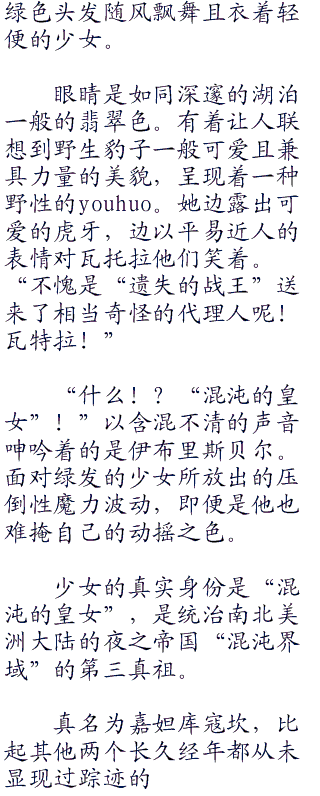 绿色头发随风飘舞且衣着轻
便的少女。
眼睛是如同深邃的湖泊
一般的翡翠色。有着让人联
想到野生豹子一般可爱且兼
具力量的美貌，呈现着一种
野性的youhuo。她边露出可
爱的虎牙，边以平易近人的
表情对瓦托拉他们笑着。
“不愧是“遗失的战王”送
来了相当奇怪的代理人呢！
瓦特拉！”
“什么！？“混沌的皇
女”！”以含混不清的声音
呻吟着的是伊布里斯贝尔。
面对绿发的少女所放出的压
倒性魔力波动，即便是他也
难掩自己的动摇之色。
少女的真实身份是“混
沌的皇女”，是统治南北美
洲大陆的夜之帝国“混沌界
域”的第三真祖。
真名为嘉妲库寇坎，比
起其他两个长久经年都从未
显现过踪迹的